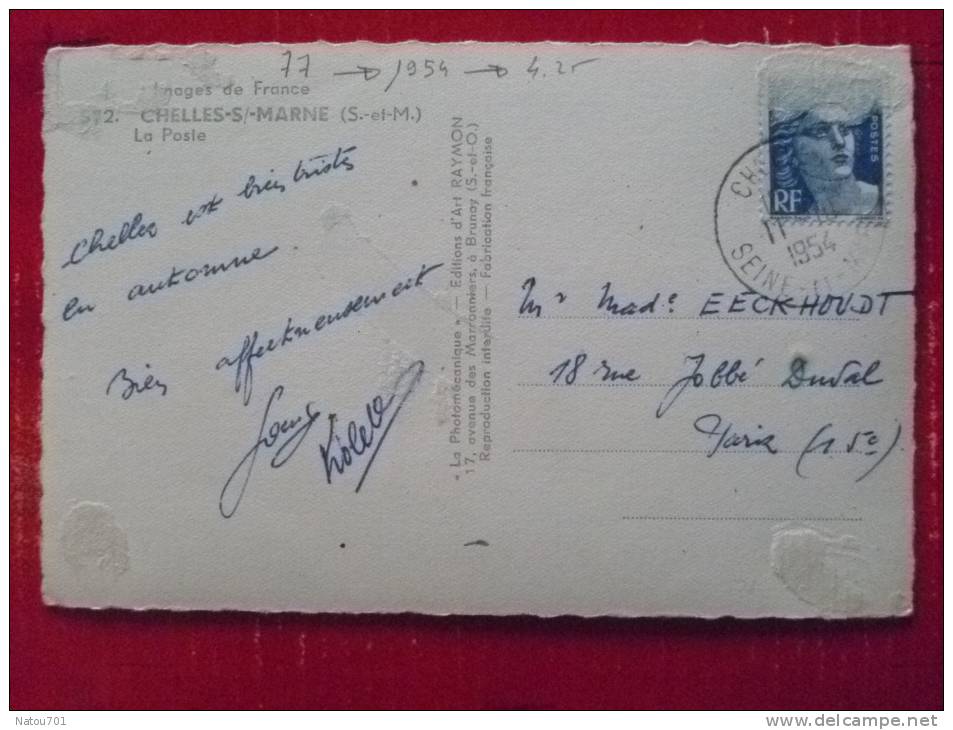 77 → 1954 → 4.25
Images de France
572. CHELLES-S/-MARNE (S.-et-M.)
La Poste
Chelles est bien triste
en automne
Bien affectueusement
« La Photomécanique » — Editions d'Art RAYMON
17, avenue des Marronniers, à Brunoy (S.-et-O.)
Reproduction interdite — Fabrication française
POSTES
RF
1954
SEINE-
Mr Made EECKHOUDT
18 rue Jobbé Duval
Paris (15e)
Natou701
www.delcampe.net